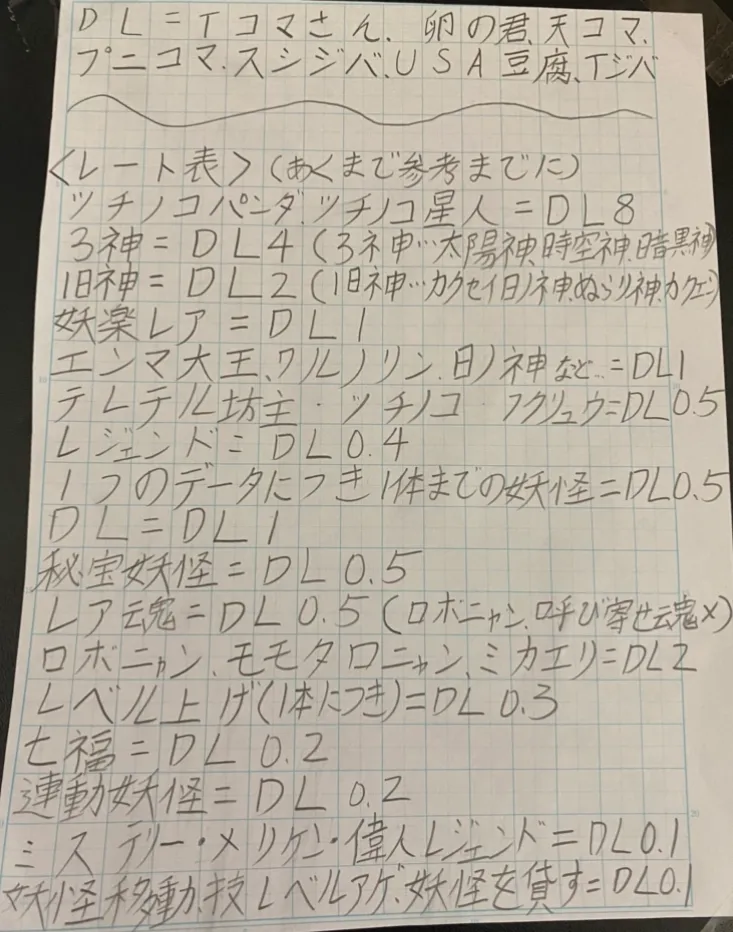 DL=Tコマさん、卵の君、天コマ、
プニコマ、スシジバ、USA豆腐、Tジバ
<レート表>(あくまで参考までに)
ツチノコパンダ、ツチノコ星人=DL8
3神=DL4(3神…太陽神、時空神、暗黒神)
旧神=DL2(旧神…カクセイ日ノ神、ぬらり神、カクエン)
妖楽レア=DL1
エンマ大王、ワルノリン、日ノ神など…=DL1
テレテル坊主・ツチノコ・フクリュウ=DL0.5
レジェンド=DL0.4
1つのデータにつき1体までの妖怪=DL0.5
DL=DL1
秘宝妖怪=DL0.5
レア魂=DL0.5(ロボニャン、呼び寄せ魂×)
ロボニャン、モモタロニャン、ミカエリ=DL2
レベル上げ(1体につき)=DL0.3
七福=DL0.2
連動妖怪=DL0.2
ミステリー・メリケン・偉人レジェンド=DL0.1
妖怪移動、技レベルアゲ、妖怪を貸す=DL0.1